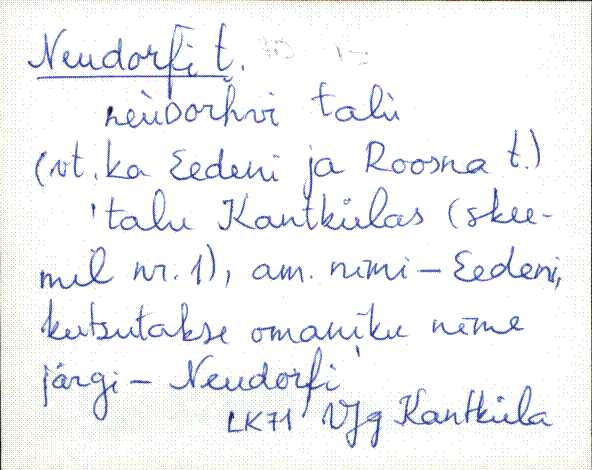 Neudorfi t.
neùdorhvi talù
(vt. ka Eedeni ja Roosna t.)
'talu Kantkülas (skee-
mil nr. 1), am. nimi – Eedeni,
kutsutakse omaniku nime
järgi – Neudorfi
LK71 VJg Kantküla